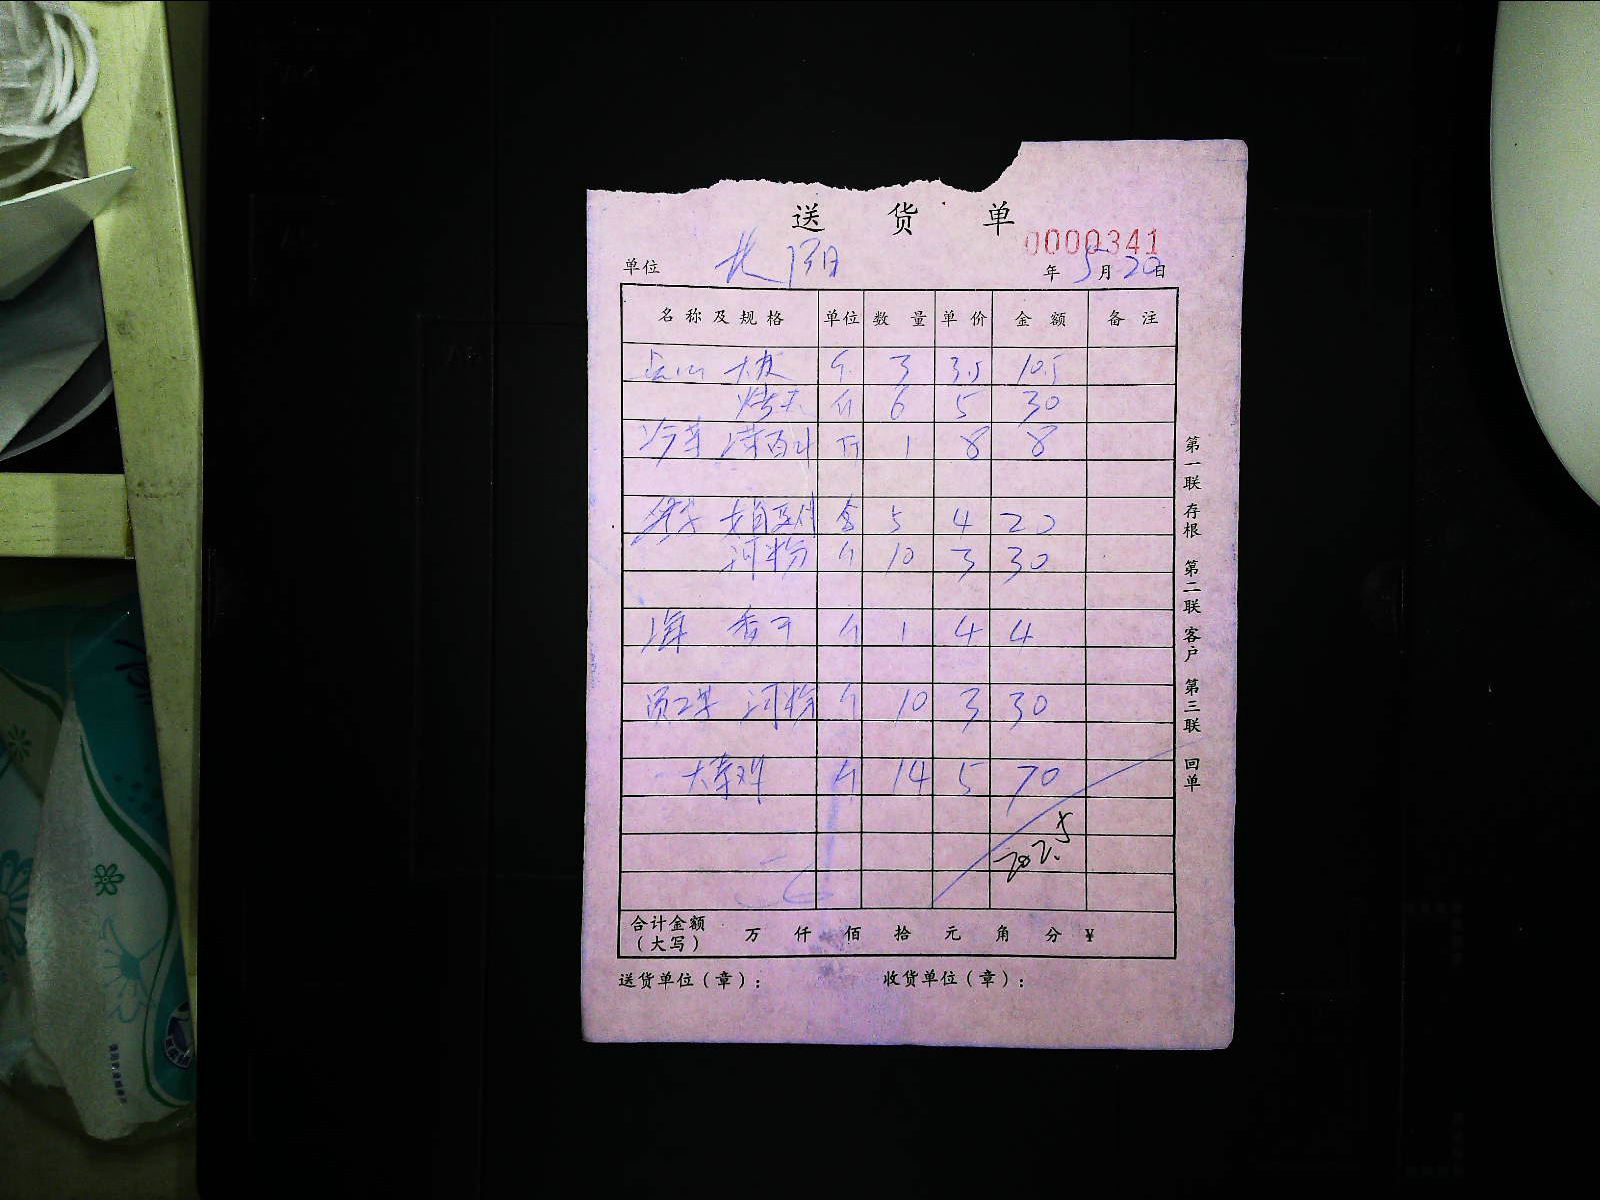 送 货 单
0000341
单位 年 5月20日
名称及规格 单位 数量 单价 金额 备注
大皮 斤 3 3.5 10.5
烤夫 斤 6 5 30
冷菜 斤 1 8 8
盒 5 4 20
河粉 斤 10 3 30
香干 斤 1 4 4
员工菜 河粉 斤 10 3 30
斤 14 5 70
202.5
合计金额
(大写) 万 仟 佰 拾 元 角 分 ¥
送货单位(章): 收货单位(章):
第一联 存根 第二联 客户 第三联 回单